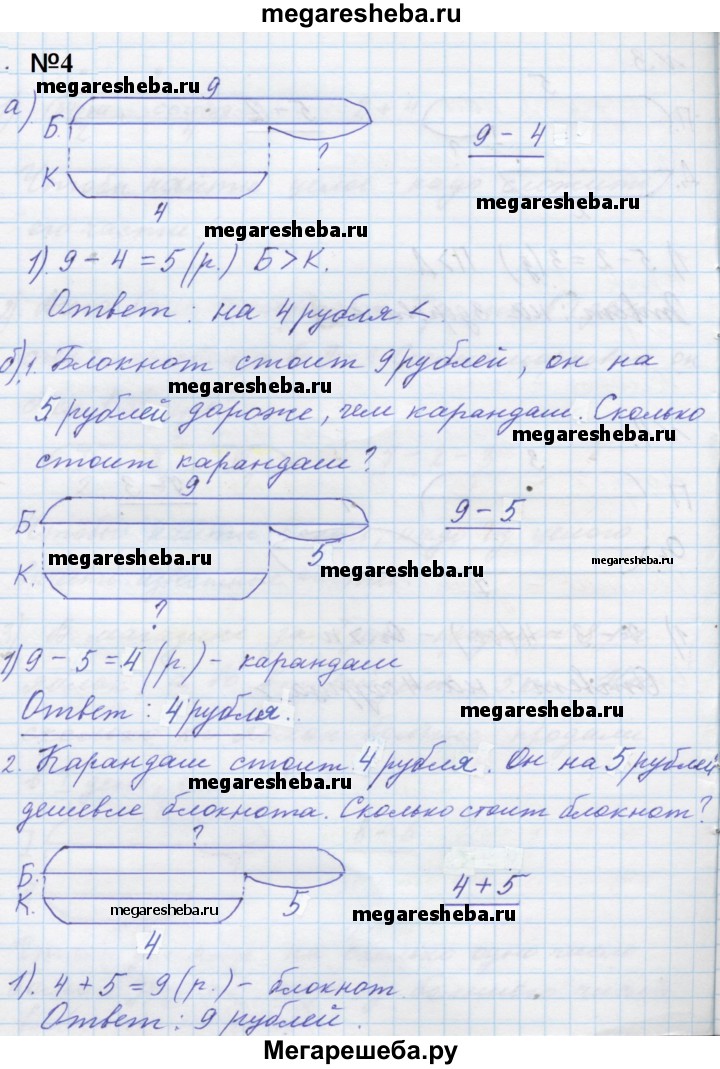 megaresheba.ru
№4
megaresheba.ru
а)
9
Б.
?
9 - 4
К
4
megaresheba.ru
megaresheba.ru
1). 9 - 4 = 5 (р.) Б > К.
Ответ: на 4 рубля <
б) 1. Блокнот стоит 9 рублей, он на
megaresheba.ru
5 рублей дороже, чем карандаш. Сколько
megaresheba.ru
стоит карандаш?
9
Б.
9 - 5
5
megaresheba.ru
megaresheba.ru
megaresheba.ru
К.
?
1) 9 - 5 = 4 (р.) - карандаш
Ответ: 4 рубля.
megaresheba.ru
2. Карандаш стоит 4 рубля. Он на 5 рублей
megaresheba.ru
дешевле блокнота. Сколько стоит блокнот?
?
Б.
4 + 5
К.
megaresheba.ru
5
megaresheba.ru
4
1). 4 + 5 = 9 (р.) - блокнот
Ответ: 9 рублей.
Мегарешеба.ру